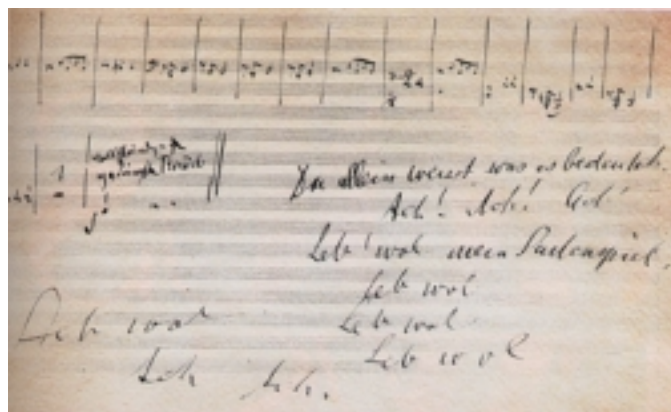 Du allein weisst was es bedeutet.
Ach! Ach! Ach!
Leb' wol mein Saitenspiel.
Leb wol
Leb wol
Leb wol
Leb wol
Ach Ach.